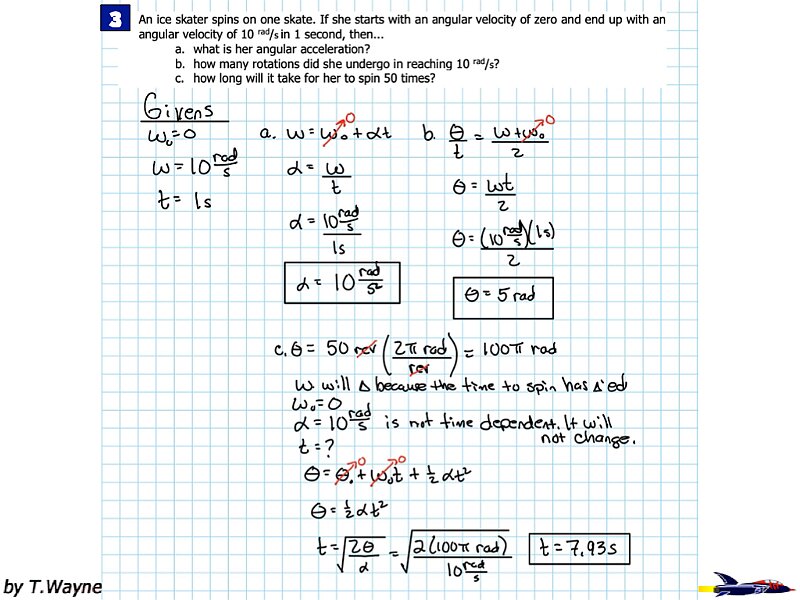 3
An ice skater spins on one skate. If she starts with an angular velocity of zero and end up with an
angular velocity of 10 rad/s in 1 second, then...
a. what is her angular acceleration?
b. how many rotations did she undergo in reaching 10 rad/s?
c. how long will it take for her to spin 50 times?
Givens
ω₀=0
ω=10 rad/s
t= 1s
a. ω=ω₀+αt
0
α= ω/t
α= 10 rad/s / 1s
α= 10 rad/s²
b. θ/t = ω+ω₀/2
0
θ= ωt/2
θ=(10 rad/s)(1s)/2
θ=5 rad
c. θ= 50 rev (2π rad/rev) = 100π rad
ω will Δ because the time to spin has Δ'ed
ω₀=0
α= 10 rad/s is not time dependent. It will
not change.
t=?
θ=θ₀+ω₀t+½αt²
0 0
θ=½αt²
t=√2θ/α =√2(100π rad)/10 rad/s t=7.93s
by T.Wayne